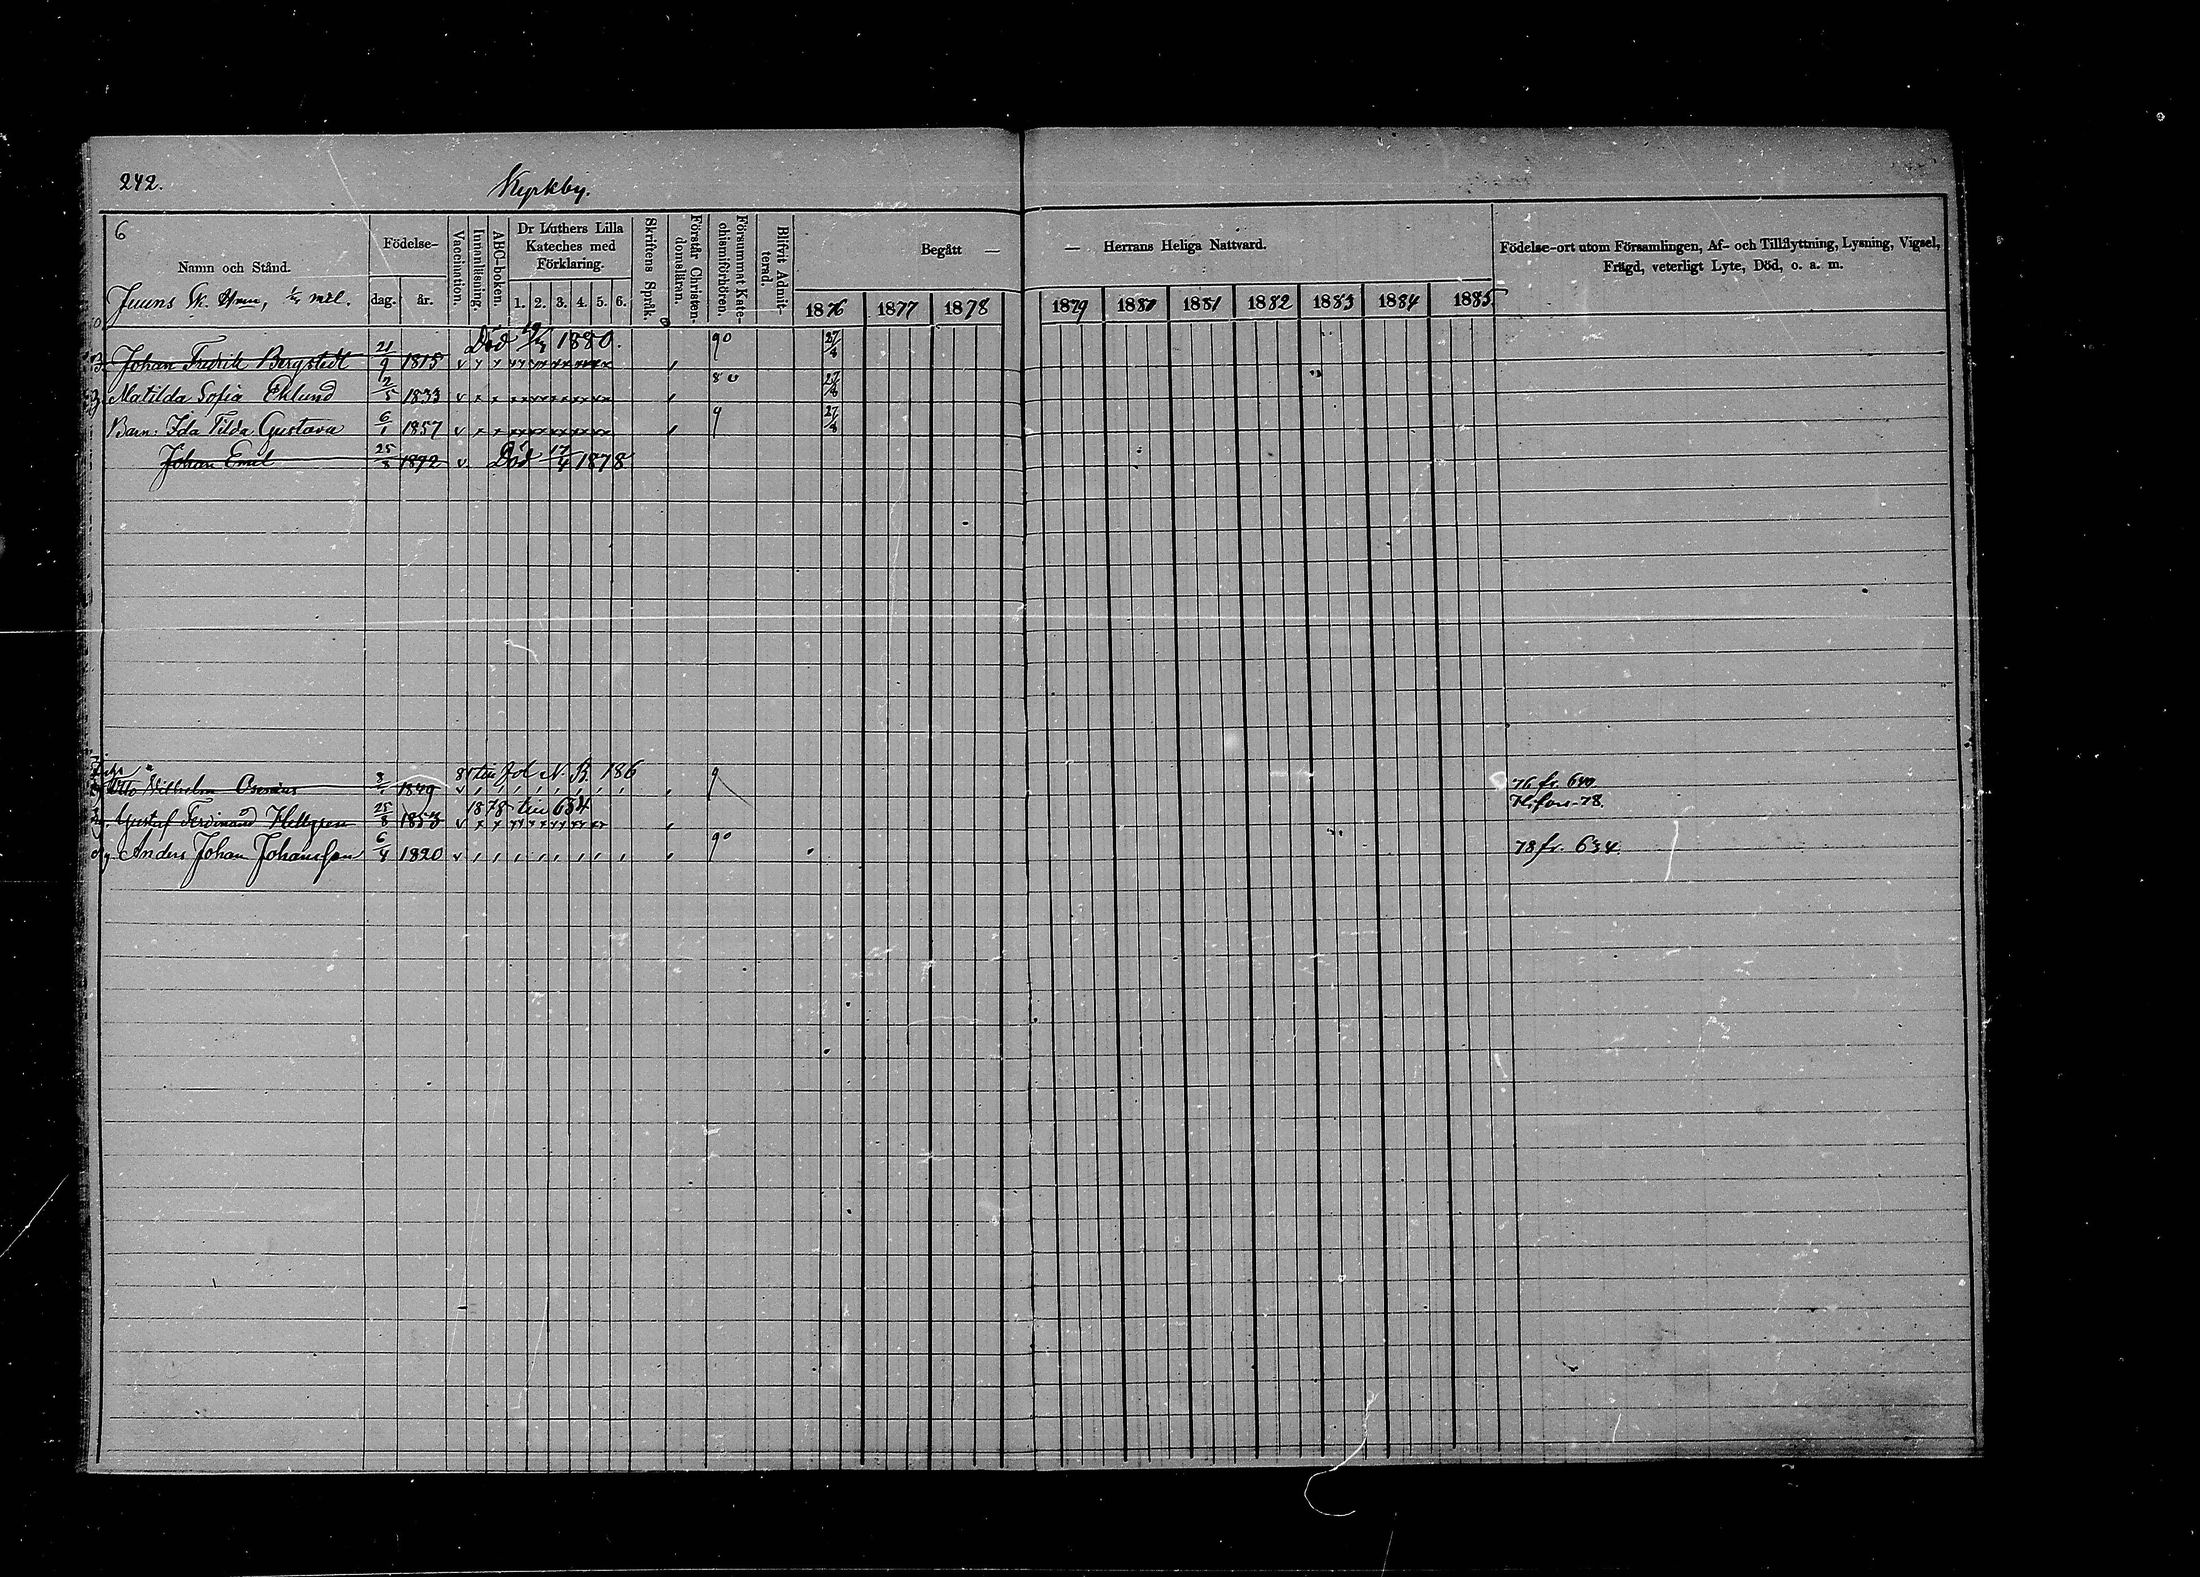 242.
Kyrkby.
6
Namn och Stånd.
Födelse-
dag.
år.
Vaccination.
Innanläsning.
ABC-boken.
Dr Luthers Lilla
Kateches med
Förklaring.
1. 2. 3. 4. 5. 6.
Skriftens Språk.
Förstår Christen-
domsläran.
Försummat Kate-
chismiförhören.
Blifvit Admit-
terad.
Begått — — Herrans Heliga Nattvard.
1876 1877 1878 1879 1880 1881 1882 1883 1884 1885
Födelse-ort utom Församlingen, Af- och Tillflyttning, Lysning, Vigsel,
Frägd, veterligt Lyte, Död, o. a. m.
Död 1880.
Johan Fredrik Bergstedt 21/9 1815 90 27/8
Matilda Sofia Eklund 2/5 1833 80 27/8
Barn: Ida Tilda Gustava 6/1 1857 9 27/8
Johan Emil 25/3 1872 v Död 17/4 1878
81 till Fol N. B. 186
Otto Vilhelm 1849 9 76 fr.
1878 till 634 H.fors-78.
Gustaf Ferdinand Hellgren 25/8 1853
Anders Johan Johansson 6/4 1820 90 78 fr. 634.